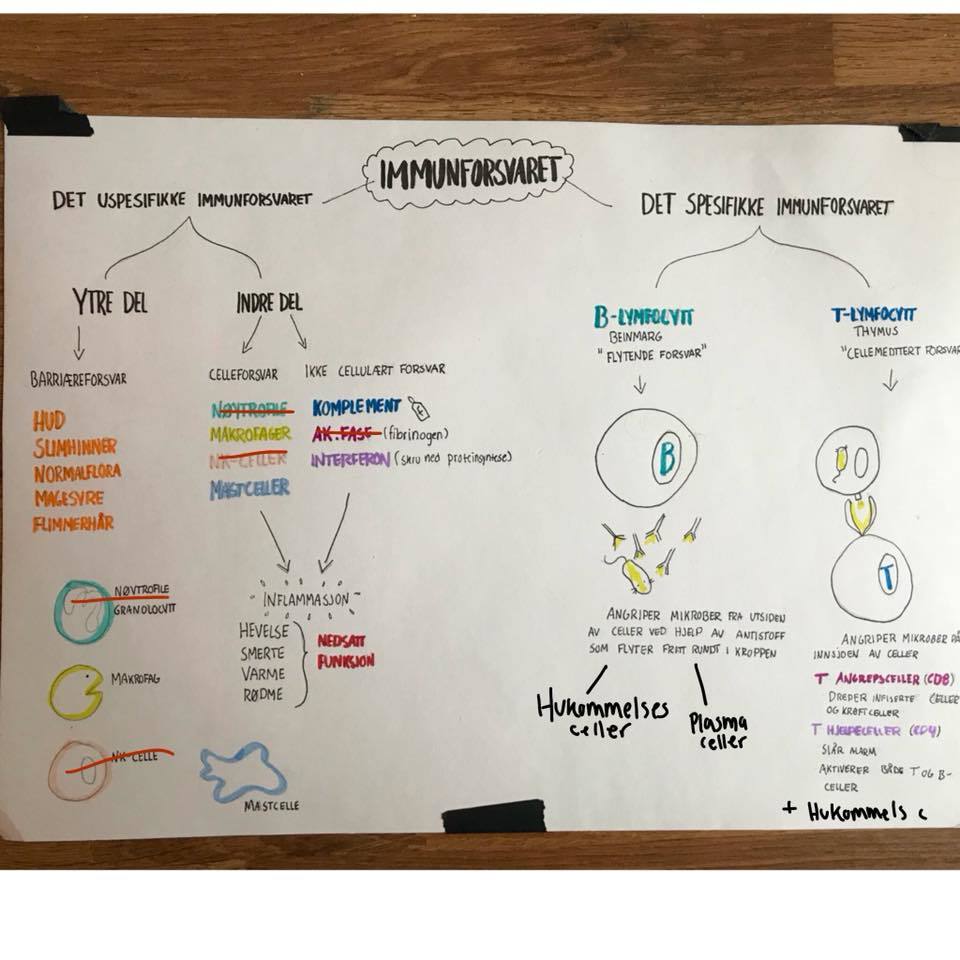 IMMUNFORSVARET
DET USPESIFIKKE IMMUNFORSVARET
YTRE DEL
BARRIÆREFORSVAR
HUD
SLIMHINNER
NORMALFLORA
MAGESYRE
FLIMMERHÅR
INDRE DEL
CELLEFORSVAR
NØYTROFILE
MAKROFAGER
NK-CELLER
MASTCELLER
IKKE CELLULÆRT FORSVAR
KOMPLEMENT
AK.FASE (fibrinogen)
INTERFERON (skru ned proteinsyntese)
INFLAMMASJON
HEVELSE
SMERTE
VARME
RØDME
NEDSATT
FUNKSJON
NØYTROFILE
GRANOLOCYTT
MAKROFAG
NK-CELLE
MASTCELLE
DET SPESIFIKKE IMMUNFORSVARET
B-LYMFOCYTT
BEINMARG
"FLYTENDE FORSVAR"
B
ANGRIPER MIKROBER FRA UTSIDEN
AV CELLER VED HJELP AV ANTISTOFF
SOM FLYTER FRITT RUNDT I KROPPEN
Hukommelses
celler
Plasma
celler
T-LYMFOCYTT
THYMUS
"CELLEMEDIERT FORSVAR
T
ANGRIPER MIKROBER PÅ
INNSIDEN AV CELLER
T ANGREPSCELLER (CD8)
DREPER INFISERTE CELLER
OG KREFTCELLER
T HJELPECELLER (CD4)
SLÅR ALARM
AKTIVERER BÅDE T OG B-
CELLER
+ Hukommels c